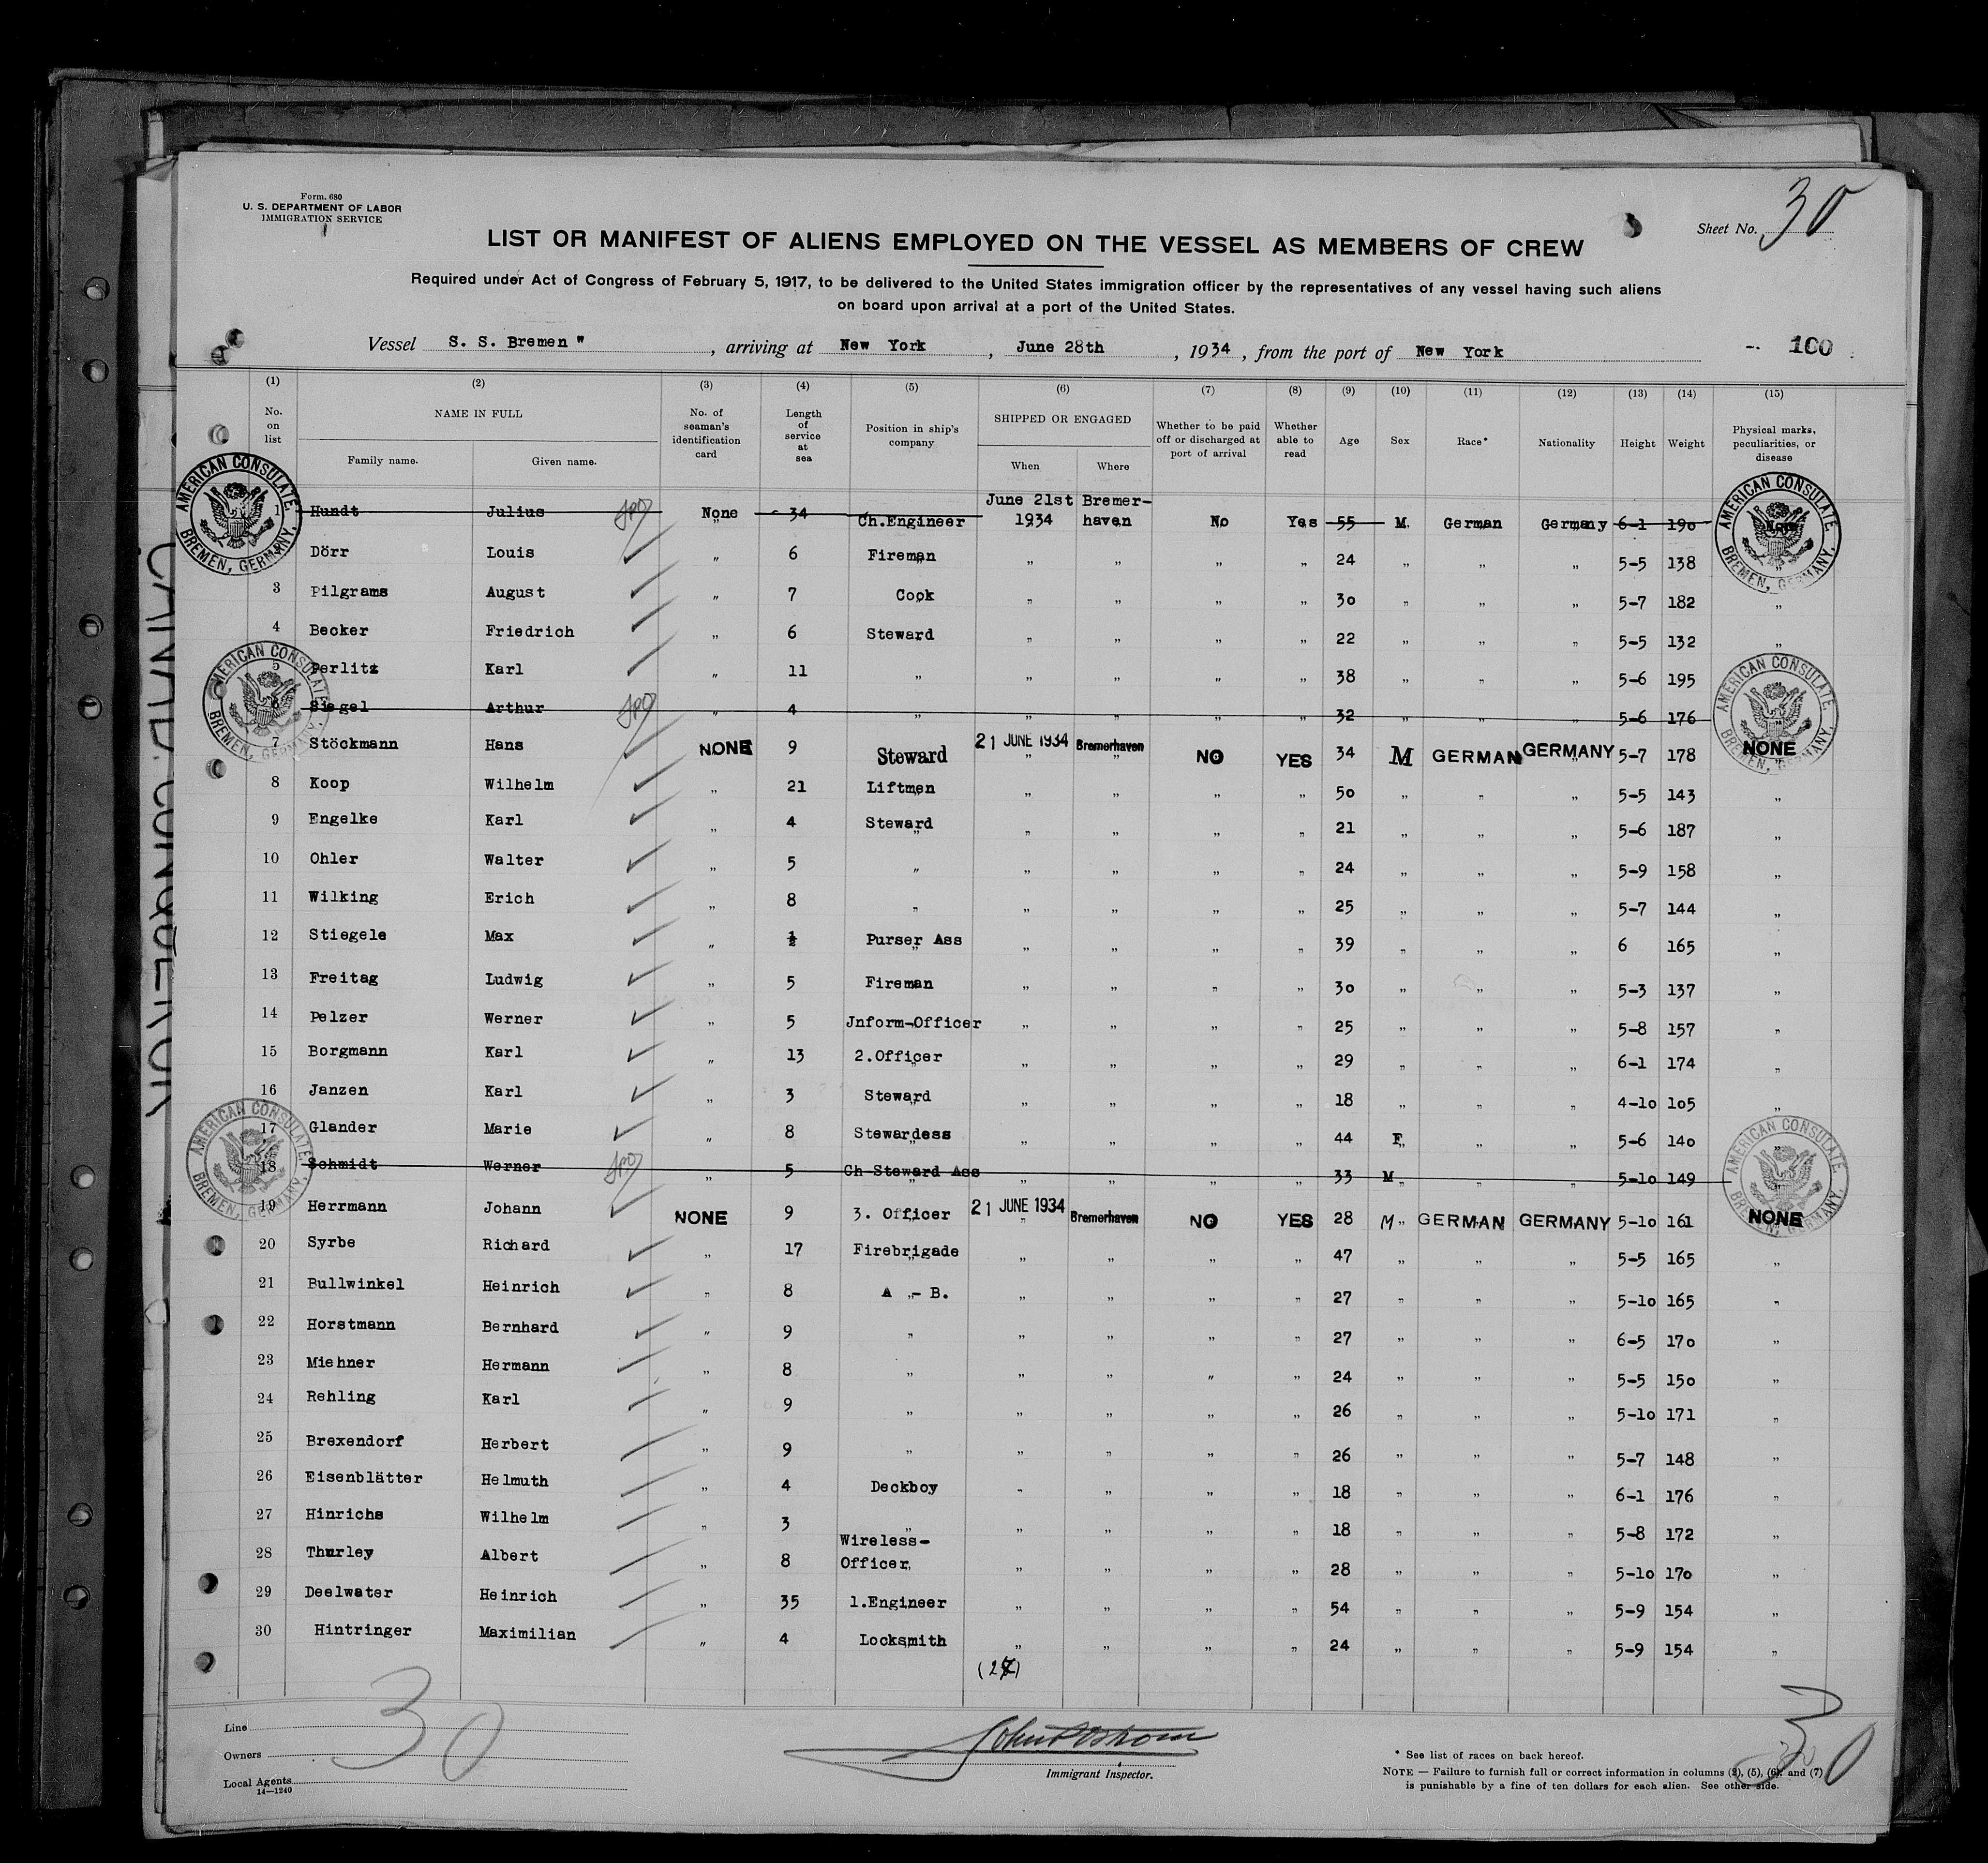 Form. 680
U. S. DEPARTMENT OF LABOR
IMMIGRATION SERVICE
Sheet No. 30
LIST OR MANIFEST OF ALIENS EMPLOYED ON THE VESSEL AS MEMBERS OF CREW
Required under Act of Congress of February 5, 1917, to be delivered to the United States immigration officer by the representatives of any vessel having such aliens
on board upon arrival at a port of the United States.
Vessel S. S. Bremen " , arriving at New York , June 28th , 1934 , from the port of New York -. 100
(1) (2) (3) (4) (5) (6) (7) (8) (9) (10) (11) (12) (13) (14) (15)
No. on list NAME IN FULL Family name. Given name. No. of seaman's identification card Length of service at sea Position in ship's company SHIPPED OR ENGAGED When Where Whether to be paid off or discharged at port of arrival Whether able to read Age Sex Race* Nationality Height Weight Physical marks, peculiarities, or disease
AMERICAN CONSULATE. BREMEN, GERMANY.
AMERICAN CONSULATE. BREMEN, GERMANY.
1 Hundt Julius None 34 Ch.Engineer June 21st 1934 Bremerhaven No Yes 55 M. German Germany 6-1 190 None
Dörr Louis " 6 Fireman " " " " 24 " " " 5-5 138 "
3 Pilgrams August " 7 Cook " " " " 30 " " " 5-7 182 "
4 Becker Friedrich " 6 Steward " " " " 22 " " " 5-5 132 "
5 Perlitz Karl " 11 " " " " " 38 " " " 5-6 195
AMERICAN CONSULATE. BREMEN, GERMANY.
AMERICAN CONSULATE. BREMEN, GERMANY.
6 Siegel Arthur " 4 " " " " " 32 " " " 5-6 176
7 Stöckmann Hans NONE 9 Steward 21 JUNE 1934 Bremerhaven NO YES 34 M GERMAN GERMANY 5-7 178 NONE
8 Koop Wilhelm " 21 Liftmen " " " " 50 " " " 5-5 143 "
9 Engelke Karl " 4 Steward " " " " 21 " " " 5-6 187 "
10 Ohler Walter " 5 " " " " " 24 " " " 5-9 158 "
11 Wilking Erich " 8 " " " " " 25 " " " 5-7 144 "
12 Stiegele Max " ½ Purser Ass " " " " 39 " " " 6 165 "
13 Freitag Ludwig " 5 Fireman " " " " 30 " " " 5-3 137 "
14 Pelzer Werner " 5 Jnform-Officer " " " " 25 " " " 5-8 157 "
15 Borgmann Karl " 13 2.Officer " " " " 29 " " " 6-1 174 "
16 Janzen Karl " 3 Steward " " " " 18 " " " 4-10 105 "
17 Glander Marie " 8 Stewardess " " " " 44 F " " 5-6 140
AMERICAN CONSULATE. BREMEN, GERMANY.
AMERICAN CONSULATE. BREMEN, GERMANY.
18 Schmidt Werner " 5 Ch Steward Ass " " " " 33 M " " 5-10 149 "
19 Herrmann Johann NONE 9 3. Officer 21 JUNE 1934 Bremerhaven NO YES 28 M GERMAN GERMANY 5-10 161 NONE
20 Syrbe Richard " 17 Firebrigade " " " " 47 " " " 5-5 165 "
21 Bullwinkel Heinrich " 8 A - B. " " " " 27 " " " 5-10 165 "
22 Horstmann Bernhard " 9 " " " " " 27 " " " 6-5 170 "
23 Miehner Hermann " 8 " " " " " 24 " " " 5-5 150 "
24 Rehling Karl " 9 " " " " " 26 " " " 5-10 171 "
25 Brexendorf Herbert " 9 " " " " " 26 " " " 5-7 148 "
26 Eisenblätter Helmuth " 4 Deckboy " " " " 18 " " " 6-1 176 "
27 Hinrichs Wilhelm " 3 " " " " " 18 " " " 5-8 172 "
28 Thurley Albert " 8 Wireless-Officer " " " " 28 " " " 5-10 170 "
29 Deelwater Heinrich " 35 1.Engineer " " " " 54 " " " 5-9 154 "
30 Hintringer Maximilian " 4 Locksmith " " " " 24 " " " 5-9 154 "
(27)
30
30
Line
Owners
Local Agents
14—1240
Immigrant Inspector.
* See list of races on back hereof.
NOTE — Failure to furnish full or correct information in columns (2), (5), (6), and (7)
is punishable by a fine of ten dollars for each alien. See other side.